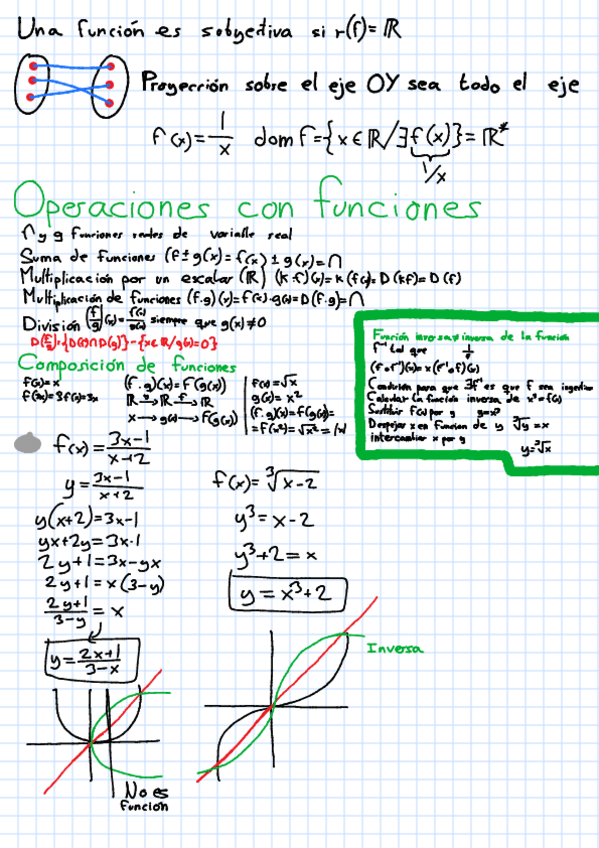 Una función es sobyectiva si r(f)=ℝ
Proyección sobre el eje OY sea todo el eje
f(x)=1/x dom f={x∈ℝ/∃f(x)}=ℝ*
1/x
Operaciones con funciones
f y g funciones reales de variable real
Suma de funciones (f±g)(x)=f(x)±g(x)=∩
Multiplicación por un escalar (ℝ) (k·f)(x)=k(f(x))=D(kf)=D(f)
Multiplicación de funciones (f·g)(x)=f(x)·g(x)=D(f·g)=∩
División (f/g)(x)=f(x)/g(x) siempre que g(x)≠0
D(f/g)={D(f)∩D(g)}-{x∈ℝ/g(x)=0}
Composición de funciones
f(x)=x (f·g)(x)=f(g(x)) f(x)=√x
f(3x)=3f(x)=3x ℝ→ℝ→ℝ g(x)=x²
x→g(x)→f(g(x)) (f·g)(x)=f(g(x))=
=f(x²)=√x²=|x|
Función inversa≠inversa de la función
f⁻¹ tal que 1/f
(f∘f⁻¹)(x)=x(f⁻¹∘f)(x)
Condición para que ∃f⁻¹ es que f sea inyectiva
Calcular la función inversa de x³=f(x)
Sustituir f(x) por y y=x³
Despejar x en función de y ³√y=x
intercambiar x por y
y=³√x
f(x)=3x-1/x+2
y=3x-1/x+2
y(x+2)=3x-1
yx+2y=3x-1
2y+1=3x-yx
2y+1=x(3-y)
2y+1/3-y=x
y=2x+1/3-x
f(x)=³√x-2
y³=x-2
y³+2=x
y=x³+2
Inversa
No es
función